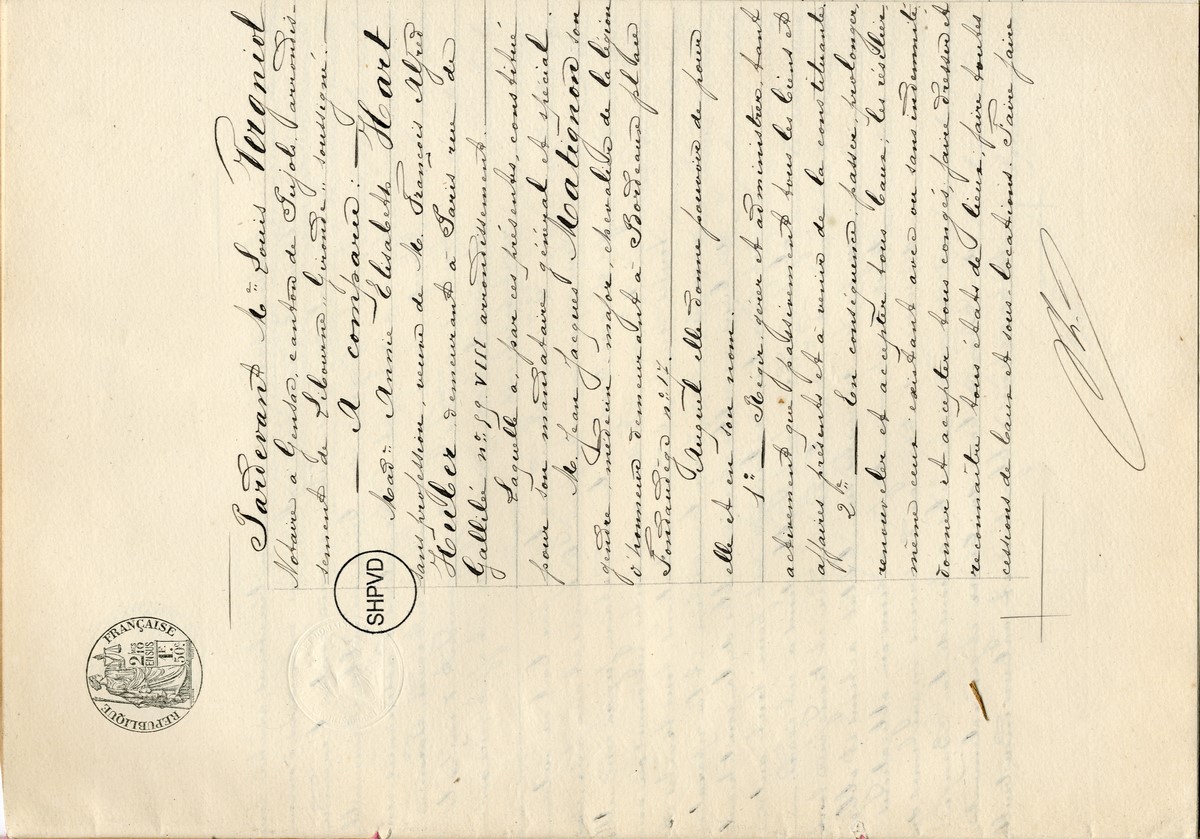 RÉPUBLIQUE FRANÇAISE
2/10 en sus
1F. 50c.
SHPVD
Pardevant Me Louis Vergniol
Notaire à Gensac, canton de Pujols, arrondis-
sement de Libourne "Gironde" soussigné.
A comparu:
Made Annie Elisabeth Hart
sans profession, veuve de M. François Alfred
Huber demeurant à Paris rue de
Gallilée no 59 VIII arrondissement.
Laquelle a, par ces présentes, constitué
pour son mandataire général et spécial
M. Jean Jacques Matignon son
gendre, médecin major, chevalier de la légion
d'honneur demeurant à Bordeaux place
no 17.
Auquel elle donne pouvoir de pour
elle et en son nom.
1o Régir, gérer et administrer, tant
activement que passivement tous les biens et
affaires présents et à venir de la constituante.
2o En conséquence, passer, prolonger,
renouveler et accepter tous baux, les résilier
même ceux existant avec ou sans indemnité
donner et accepter tous congés, faire dresser et
reconnaître tous états de lieux, faire toutes
cessions de baux et sous-locations. Faire faire